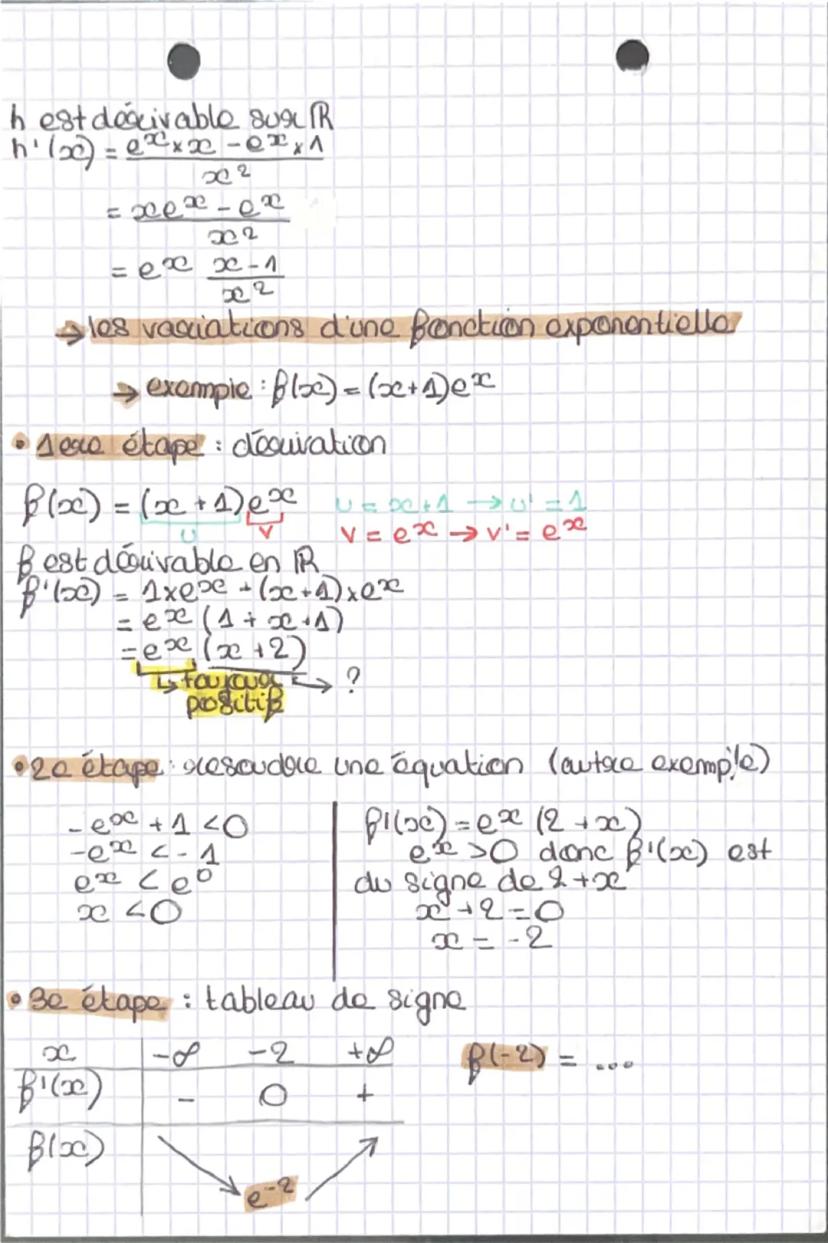 h est dérivable sur ℝ
h'(x) = (eˣ × x - eˣ × 1) / x²
= (xeˣ - eˣ) / x²
= eˣ (x - 1) / x²
→ les variations d'une fonction exponentielle
→ exemple : f(x) = (x+1)eˣ
• 1ere étape : dérivation
f(x) = (x + 1)eˣ u = x+1 → u' = 1
u v v = eˣ → v' = eˣ
f est dérivable en ℝ
f'(x) = 1×eˣ + (x+1)×eˣ
= eˣ (1 + x + 1)
= eˣ (x + 2)
↳ toujours → ?
positif
• 2e étape : resoudre une équation (autre exemple)
-eˣ + 1 < 0
-eˣ < -1
eˣ < e⁰
x < 0
f'(x) = eˣ (2 + x)
eˣ > 0 donc f'(x) est
du signe de 2 + x
x + 2 = 0
x = -2
• 3e étape : tableau de signe
x -∞ -2 +∞ f(-2) = ...
f'(x) - 0 +
f(x) ↘ e⁻² ↗